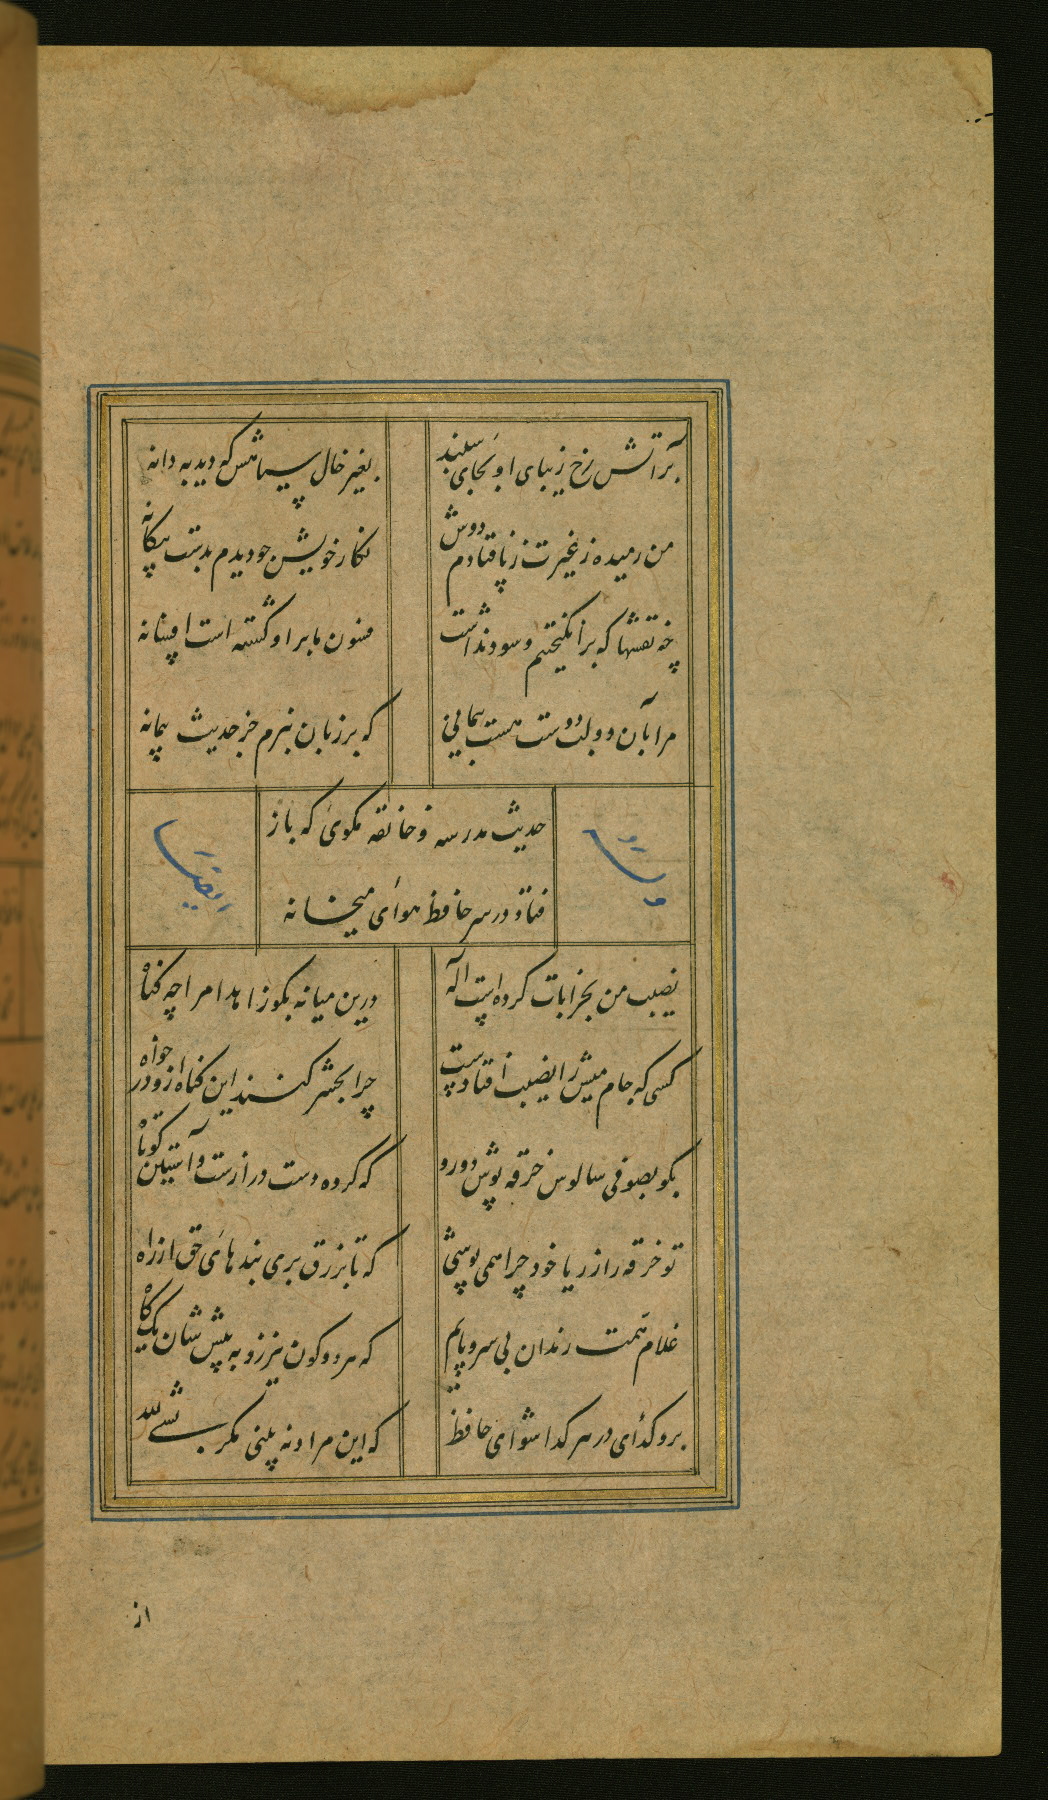 بر آتش رخ زیبای او بجای سپند
بغیر خال سیاهش که دید به دانه
من رمیده ز غیرت ز پا فتادم دوش
نگار خویش چو دیدم بدست بیگانه
چه نقشها که برانگیختیم و سود نداشت
فسون ما بر او گشته است افسانه
مرا بآن دو لب دوست هست پیمانی
که بر زبان نبرم جز حدیث پیمانه
حدیث مدرسه و خانقه مگوی که باز
فتاد در سر حافظ هوای میخانه
وله
ایضا
نصیب من بخرابات کرده است اله
درین میانه بگو زاهدا مرا چه گناه
کسی که جام میش را نصیب افتادست
چرا بحشر کنند این گناه ازو در خواه
بگو بصوفی سالوس خرقه پوش دورو
که کرده دست درازست و آستین کوتاه
تو خرقه را ز ریا خود چرا همی پوشی
که تا بزرق بری بندهای حق از راه
غلام همت رندان بی سر و پایم
که هر دو کون نیرزد به پیش شان یک کاه
برو گدای در هر گدا شو ای حافظ
که این مراد نه بینی مگر بشی لله
از